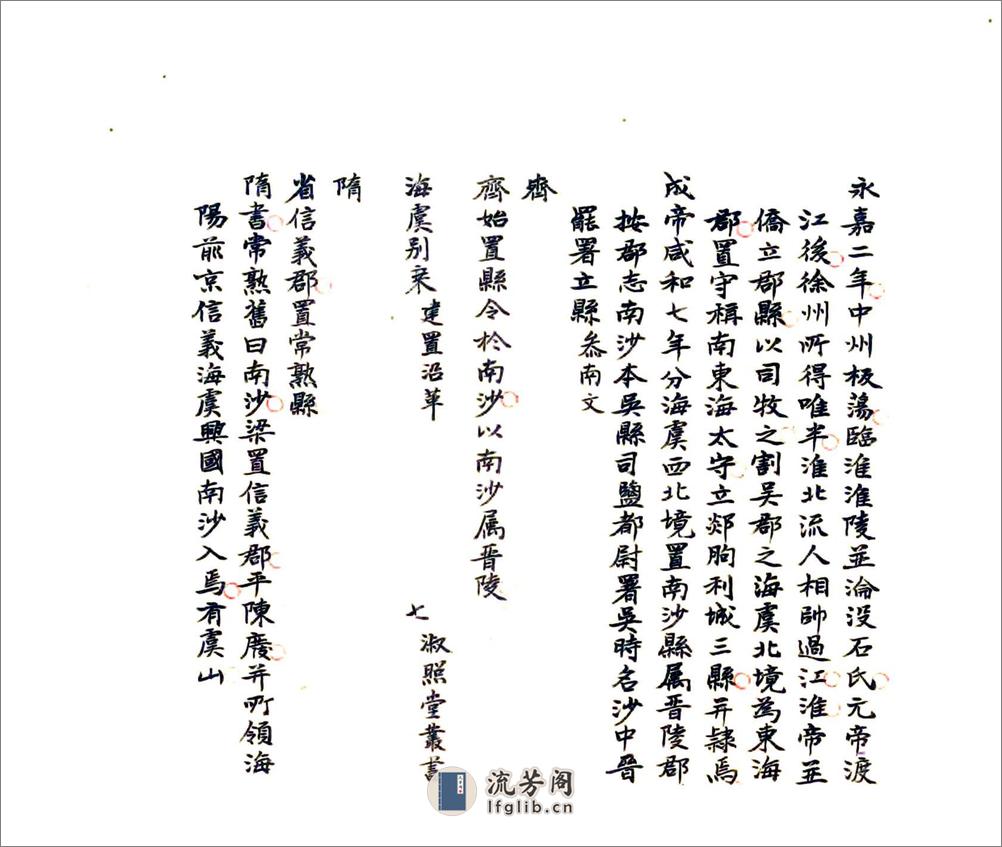 永嘉二年中州板蕩臨淮淮陵並淪没石氏元帝渡
江後徐州所得唯半淮北流人相帥過江淮帝並
僑立郡縣以司牧之割吴郡之海虞北境為東海
郡置守稱南東海太守立郯朐利城三縣并隷焉
成帝咸和七年分海虞西北境置南沙縣属晉陵郡
按郡志南沙本吴縣司鹽都尉署吴時名沙中晉
罷署立縣叅南文
齊
齊始置縣令於南沙以南沙属晉陵
海虞别乘 建置沿革 七 淑照堂叢書
隋
省信義郡置常熟縣
隋書常熟舊曰南沙梁置信義郡平陳廢并所領海
陽前京信義海虞興國南沙入焉有虞山
流芳阁
lfglib.cn